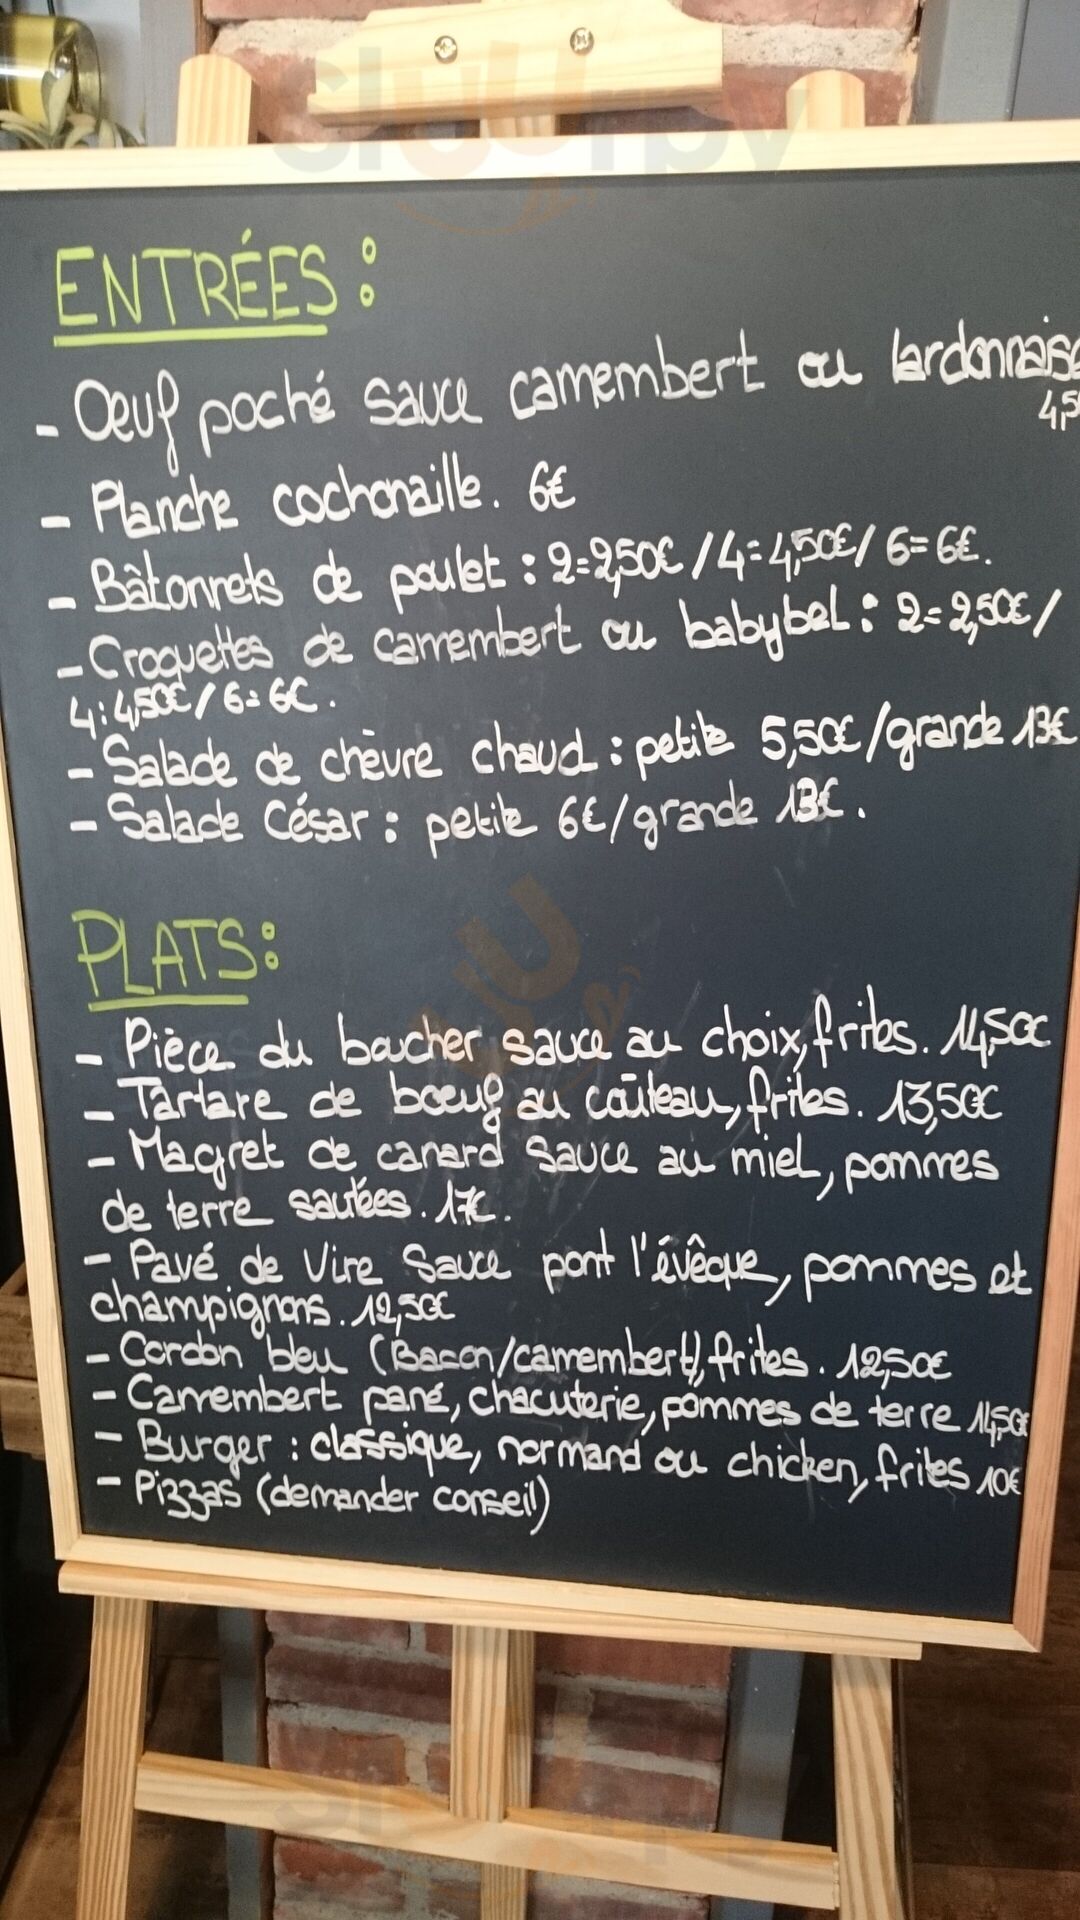 sluurpy
ENTRÉES :
- Œuf poché sauce camembert ou lardonnaise
4,5
- Planche cochonaille. 6€
- Bâtonnets de poulet : 2=2,50€ / 4=4,50€ / 6=6€.
- Croquettes de camembert ou babybel : 2=2,50€ /
4:4,50€ / 6=6€.
- Salade de chèvre chaud : petite 5,50€ / grande 13€
- Salade César : petite 6€ / grande 13€.
PLATS :
- Pièce du boucher sauce au choix, frites. 14,50€
- Tartare de bœuf au coûteau, frites. 13,50€
- Magret de canard sauce au miel, pommes
de terre sautées. 17€.
- Pavé de Vire Sauce pont l'évêque, pommes et
champignons. 12,50€
- Cordon bleu (Bacon/camembert), frites. 12,50€
- Camembert pané, chacuterie, pommes de terre 14,50€
- Burger : classique, normand ou chicken, frites 10€
- Pizzas (demander conseil)